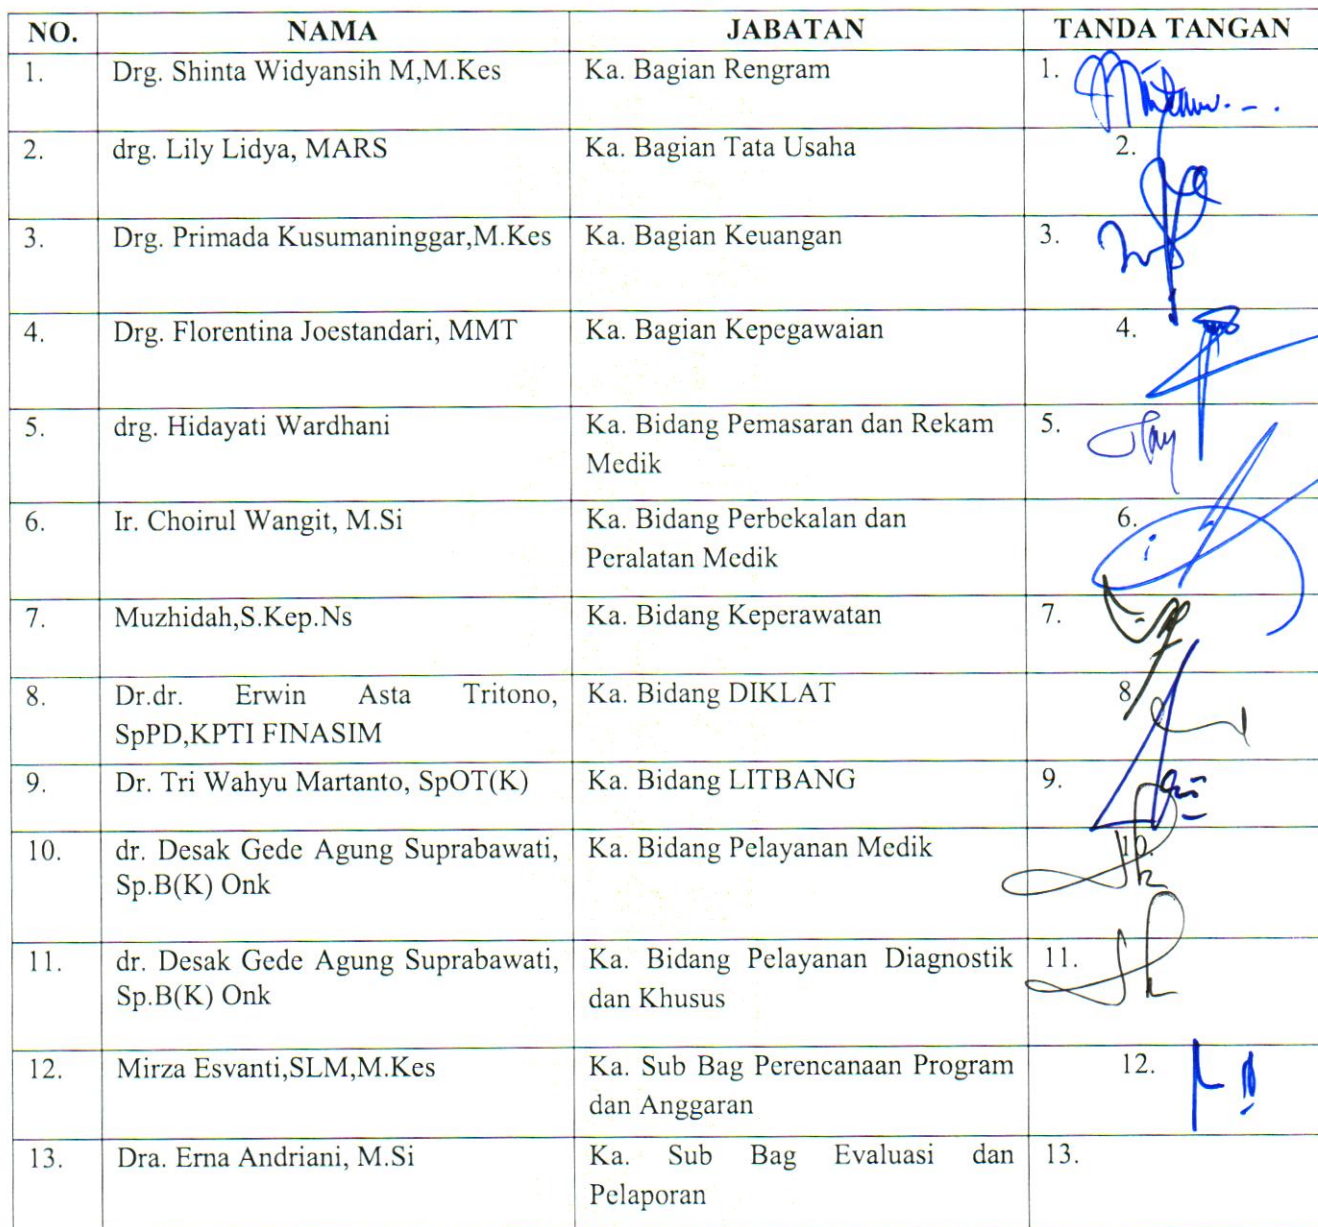 NO. NAMA JABATAN TANDA TANGAN
1. Drg. Shinta Widyansih M,M.Kes Ka. Bagian Rengram 1.
2. drg. Lily Lidya, MARS Ka. Bagian Tata Usaha 2.
3. Drg. Primada Kusumaninggar,M.Kes Ka. Bagian Keuangan 3.
4. Drg. Florentina Joestandari, MMT Ka. Bagian Kepegawaian 4.
5. drg. Hidayati Wardhani Ka. Bidang Pemasaran dan Rekam 5.
Medik
6. Ir. Choirul Wangit, M.Si Ka. Bidang Perbekalan dan 6.
Peralatan Medik
7. Muzhidah,S.Kep.Ns Ka. Bidang Keperawatan 7.
8. Dr.dr. Erwin Asta Tritono, Ka. Bidang DIKLAT 8
SpPD,KPTI FINASIM
9. Dr. Tri Wahyu Martanto, SpOT(K) Ka. Bidang LITBANG 9.
10. dr. Desak Gede Agung Suprabawati, Ka. Bidang Pelayanan Medik 10.
Sp.B(K) Onk
11. dr. Desak Gede Agung Suprabawati, Ka. Bidang Pelayanan Diagnostik 11.
Sp.B(K) Onk dan Khusus
12. Mirza Esvanti,SLM,M.Kes Ka. Sub Bag Perencanaan Program 12.
dan Anggaran
13. Dra. Erna Andriani, M.Si Ka. Sub Bag Evaluasi dan 13.
Pelaporan